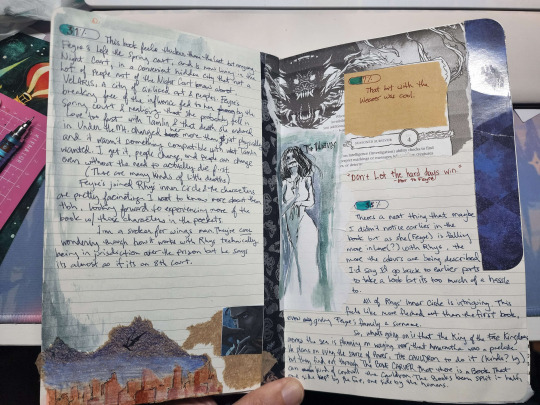 31%
This book feels thicker than the last but anyways
Feyre's left the Spring court, and is now living in the
Night Court, in a concealed hidden city that not a
lot of people not of the Night Court know about
VELARIS, a city of artists at a Feyre's
Spring court & realizing that she probably fell in
love too fast with Tamlin & that death she endured
in Under the Mtn. changed her not just physically
and it wasn't something compatible with what Tamlin
wanted. I get it, people change, and people can change
even without the need to actually die first.
(There are many kinds of little deaths)
Feyre's joined Rhys' inner circle & the characters
are pretty fascinating. I want to know more about them
than. looking forward to experiencing more of the
book w/ these characters in the pockets
I'm a sucker for wings man. They're core
wondering though how it works with Rhys technically
being in jurisdiction over the prison but he says
its almost as if its an 8th court.
17%
That bit with the
Weaver was cool.
"Don't let the hard days win"
- Mor to Feyre
There's a neat thing that maybe
I didn't notice earlier in the
book but as she (Feyre) is falling
more in love(?) with Rhys, the
more the colors are being described
I'd say I'd go back to earlier parts
to take a look but its too much of a hassle
to.
All of Rhys' Inner Circle is intriguing. This
feels like more fleshed out than the first book,
even giving Feyre's family a surname.
So, what's going on is that the King of the Fae Kingdom
across the sea is planning on waging war, that Amarantha was a prelude.
He plans on using the source of Power, the CAULDRON to do it (kinda?)
but they find out through the BONE CARVER that there is a Book That
can control the Cauldron. The Book's been split in half,
one side kept by the Fae, one side by the humans.